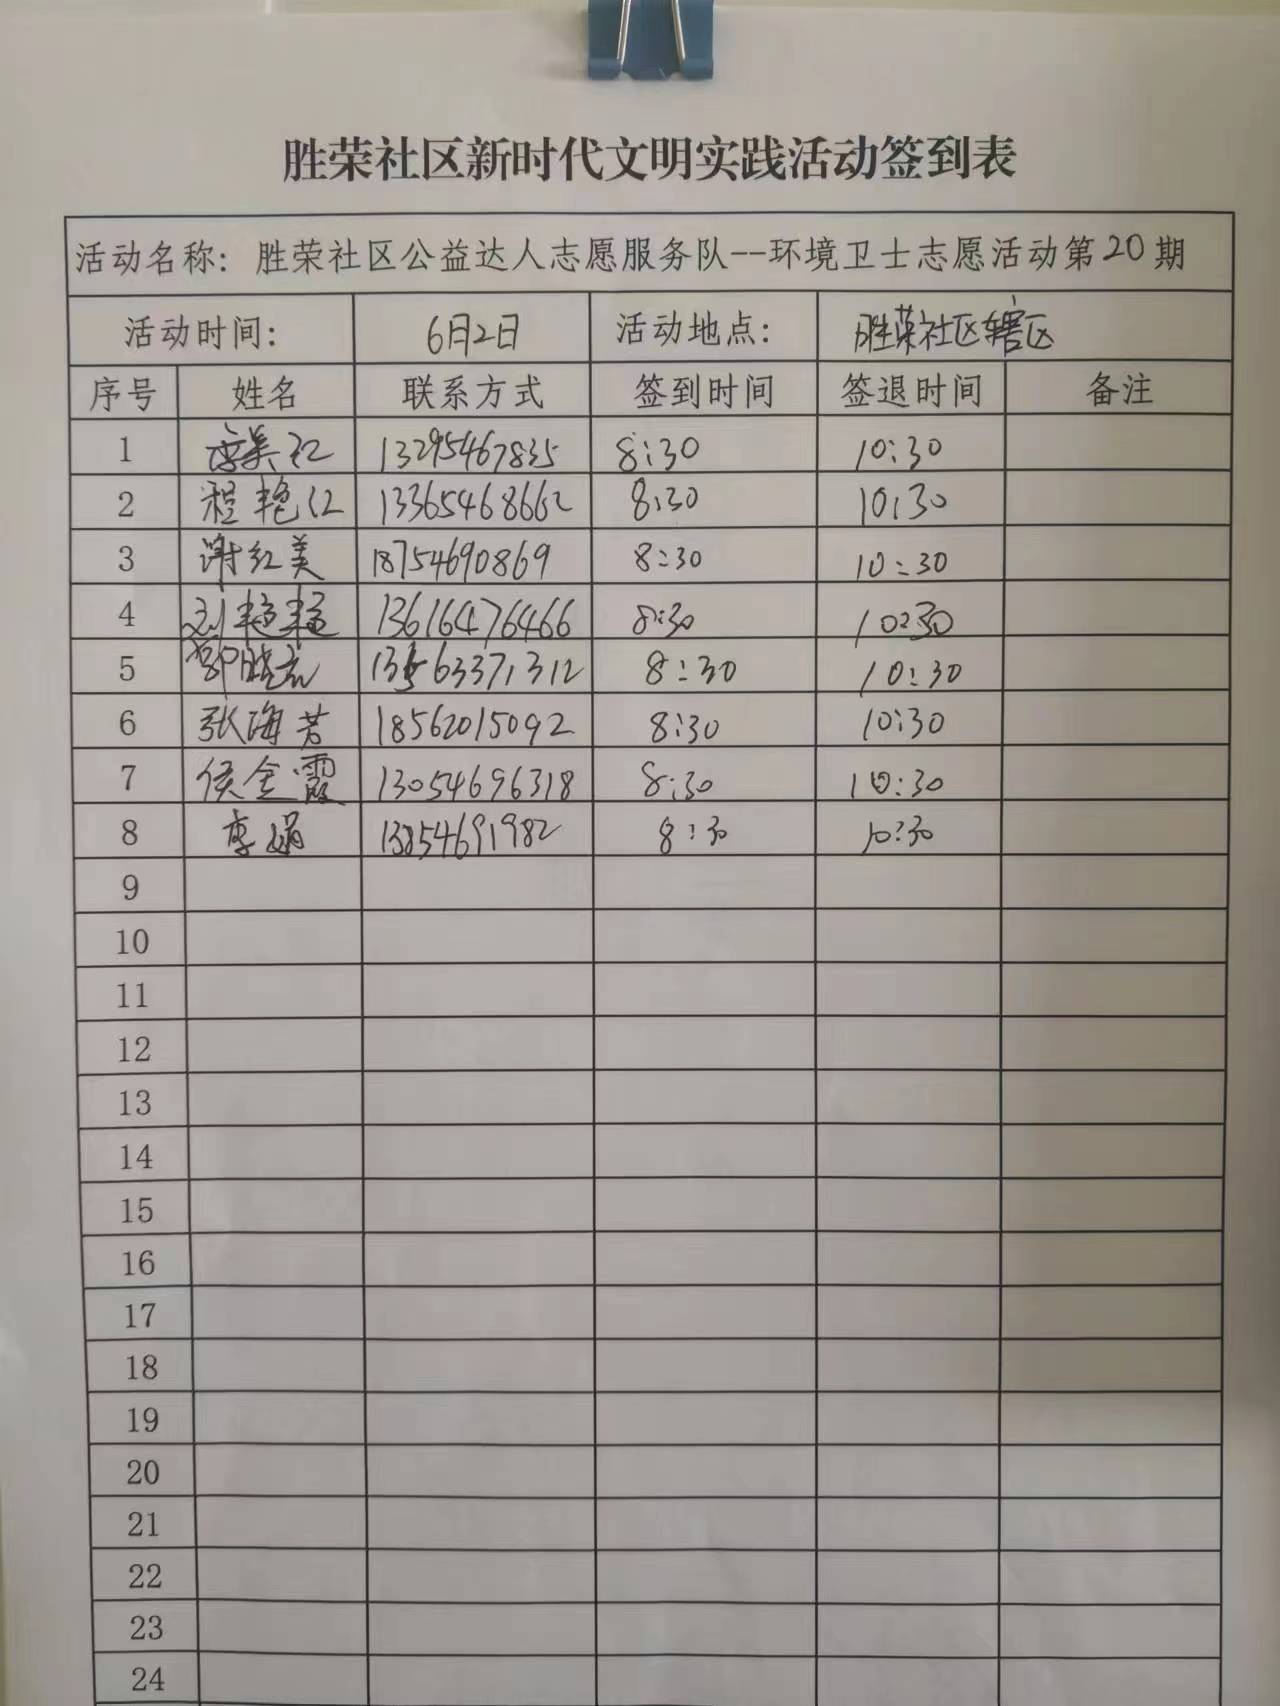 胜荣社区新时代文明实践活动签到表
活动名称：胜荣社区公益达人志愿服务队--环境卫士志愿活动第20期
活动时间： 6月2日 活动地点： 胜荣社区辖区
序号 姓名 联系方式 签到时间 签退时间 备注
1 美红 13295467835 8:30 10:30
2 程艳红 13365468662 8:30 10:30
3 谢红美 18754690869 8:30 10:30
4 刘艳艳 13616476466 8:30 10:30
5 13563371312 8:30 10:30
6 张海芳 18562015092 8:30 10:30
7 侯金霞 13054696318 8:30 10:30
8 李娟 13854691982 8:30 10:30
9
10
11
12
13
14
15
16
17
18
19
20
21
22
23
24